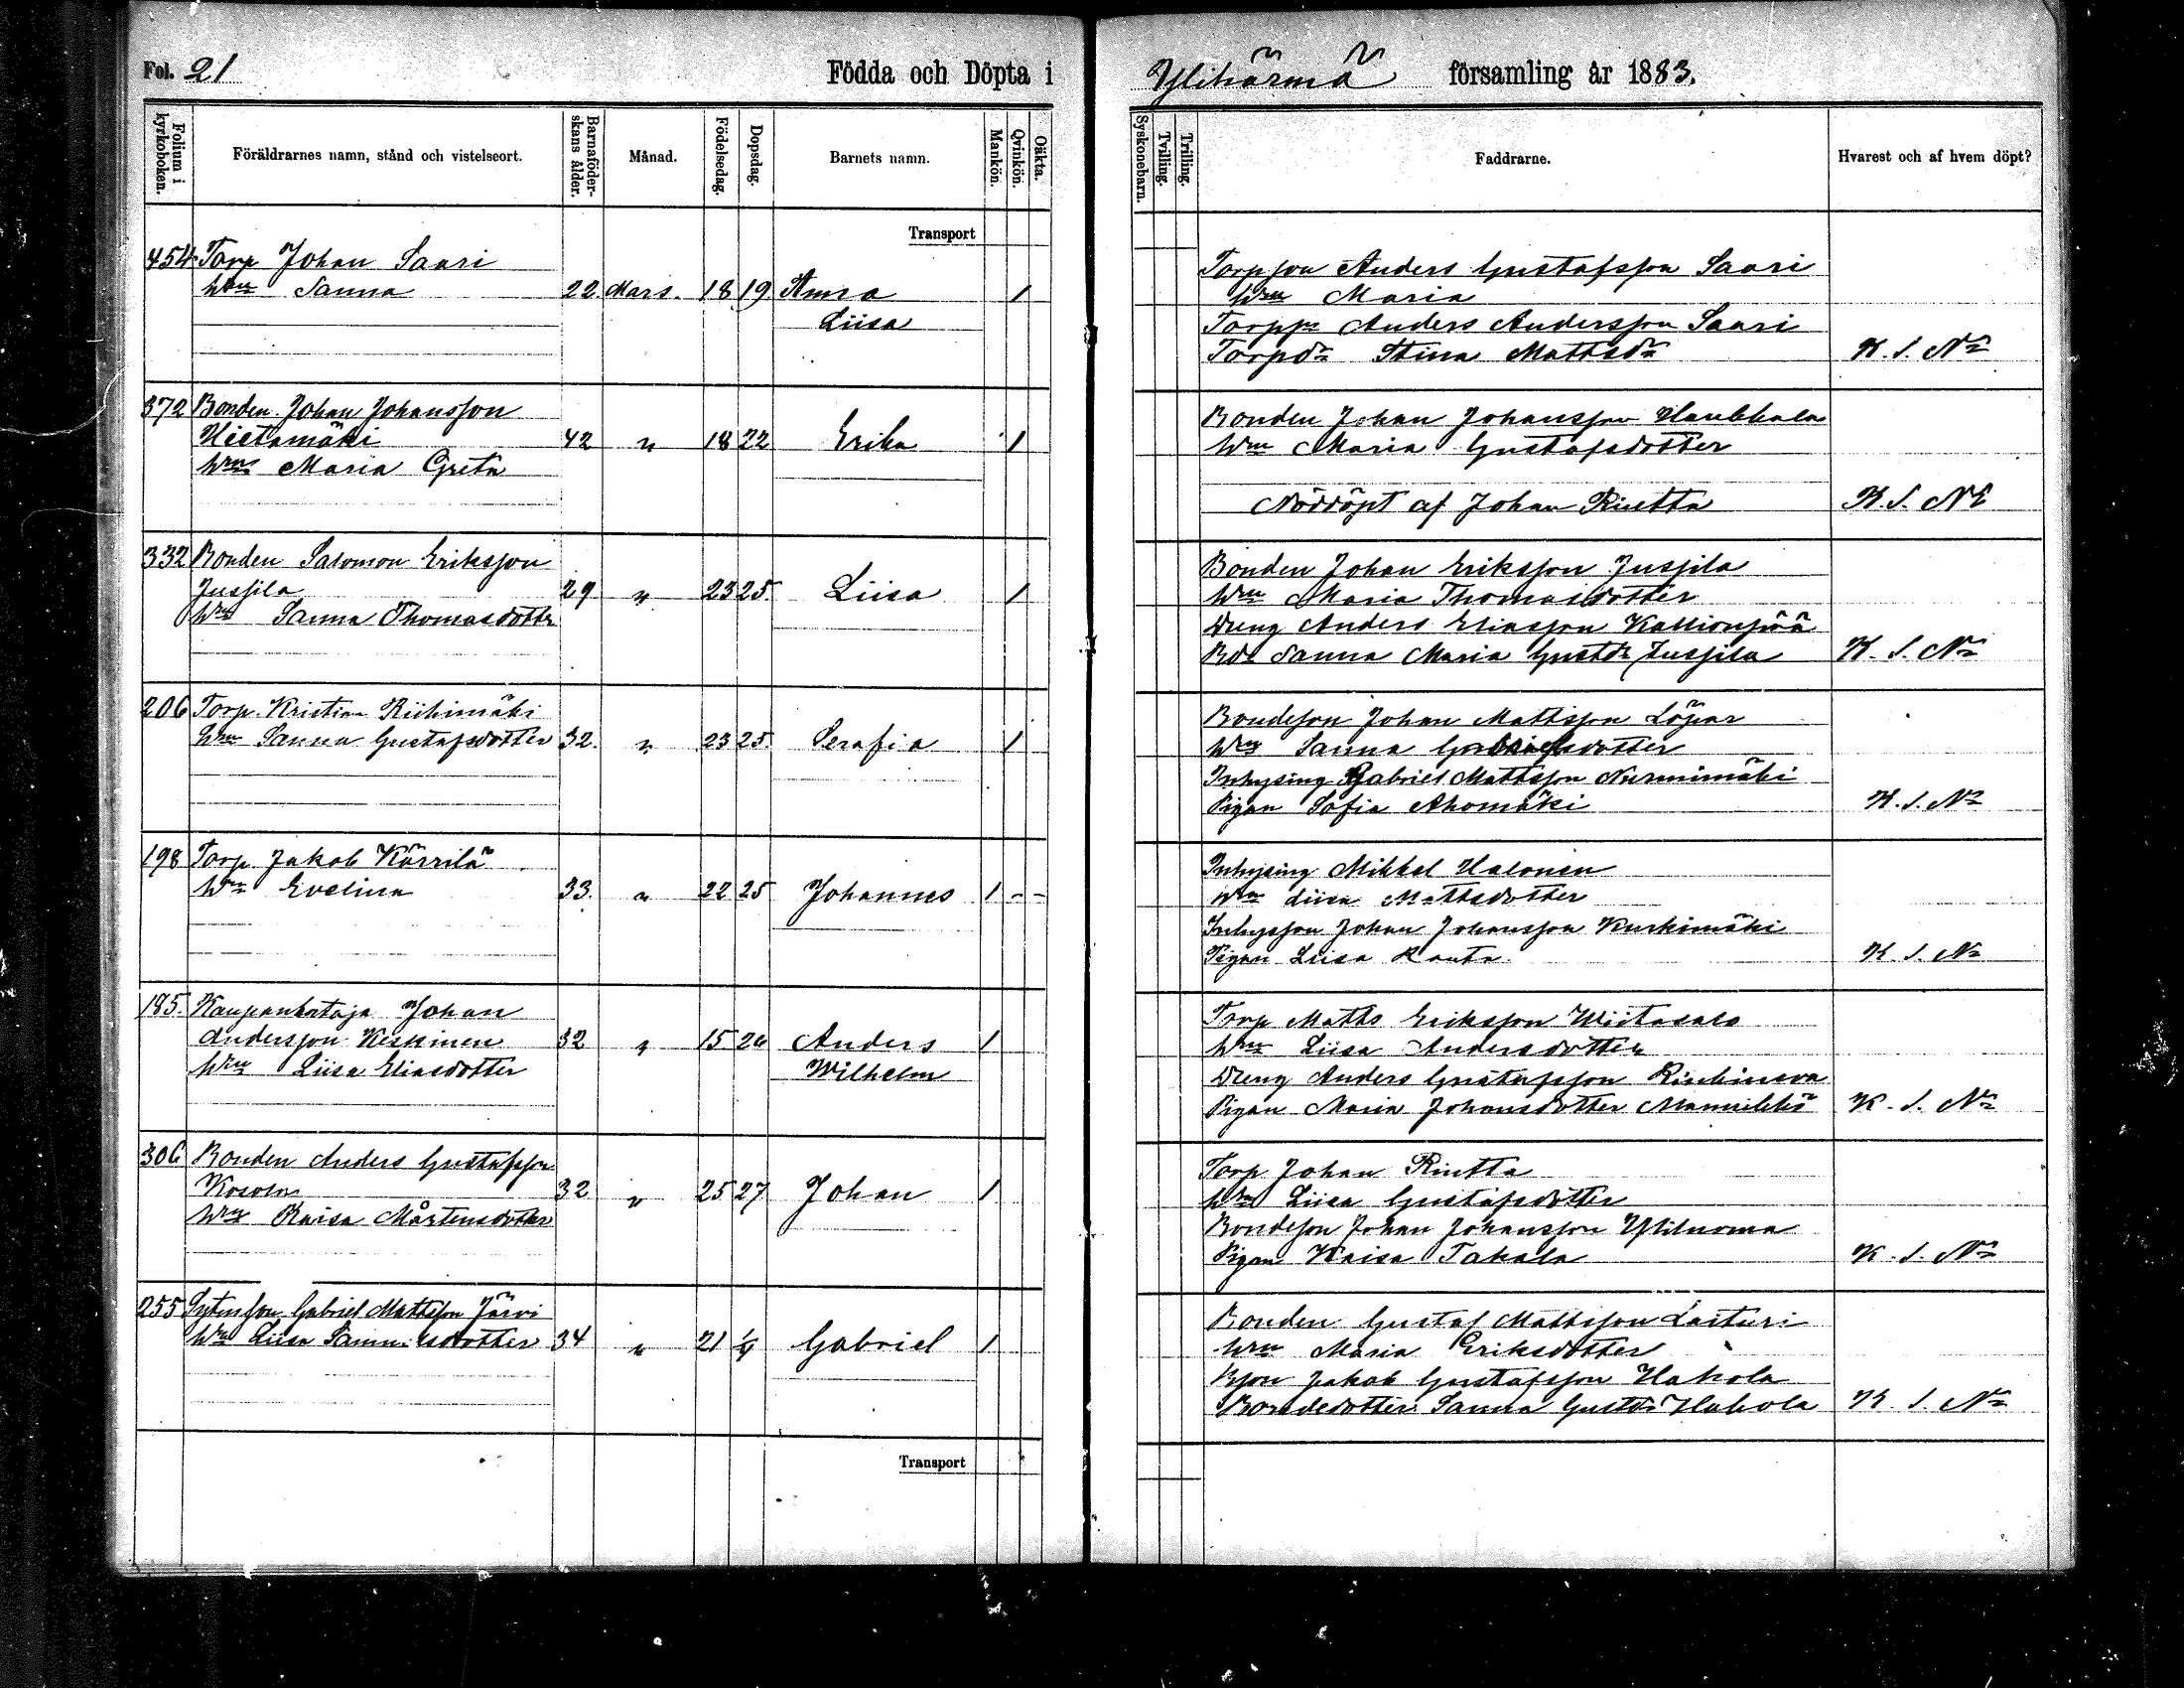 Fol. 21
Födda och Döpta i
Folium i kyrkoboken.
Föräldrarnes namn, stånd och vistelseort.
Barnaföderskans ålder.
Månad.
Födelsedag.
Dopsdag.
Barnets namn.
Mankön.
Qvinkön.
Oäkta.
Transport
454 Torp Johan Saari
hru Sanna 22. Mars. 18 19 Anna 1
Liisa
372 Bonden Johan Johansson
Hietamäki 42 " 18 22 Erika 1
hru Maria Greta
332 Bonden Salomon Eriksson
Jussila 29 " 23 25. Liisa 1
hru Sanna Thomasdotter
206 Torp. Kristian Riihimäki
hru Sanna Gustafsdotter 32. " 23 25. Serafia 1
198 Torp. Jakob Kärrilä
hru Evelina 33. " 22 25 Johannes 1 - -
185. Kaupanhataja Johan
Andersson Keskinen 32 " 15 26 Anders 1
hru Liisa Eliasdotter Wilhelm
306 Bonden Anders Gustafsson
Kosola 32 " 25 27 Johan 1
hru Kaisa Mårtensdotter
255 Gabriel Mattsson Järvi
hru Liisa Samuelsdotter 34 " 21 1/4 Gabriel 1
Transport
Ylihärmä församling år 1883.
Syskonebarn.
Tvilling.
Trilling.
Faddrarne.
Hvarest och af hvem döpt?
Torpson Anders Gustafsson Saari
hru Maria
Torppn Anders Andersson Saari
Torpdr Stina Mattsdr K. S. Nr
Bonden Johan Johansson Haukkala
hru Maria Gustafsdotter
Nöddöpt af Johan Rintta K. S. Nr
Bonden Johan Eriksson Jussila
hru Maria Thomasdotter
Dreng Anders Eliasson Kallionpää
Bdr Sanna Maria Gustdr Jussila K. S. Nr
Bondeson Johan Mattsson Löpar
hru Sanna Gabrielsdotter
Inhysing Gabriel Mattsson Nurmimäki
Pigan Sofia Ahomäki K. S. Nr
Inhysing Mikkel Halonen
hru Liisa Mattsdotter
Inhysson Johan Johansson Kurkimäki
Pigan Liisa Rauta K. S. Nr
Torp Matts Eriksson Wiitasalo
hru Liisa Andersdotter
Dreng Anders Gustafsson
Pigan Maria Johansdotter Mannikkö K. S. Nr
Torp Johan Rintta
hru Liisa Gustafsdotter
Bondeson Johan Johansson Yliluoma
Pigan Kaisa Takala K. S. Nr
Bonden Gustaf Mattsson Laituri
hru Maria Eriksdotter
Bson Jakob Gustafsson Hakola
Bondedotter Sanna Gustdr Hakola K. S. Nr